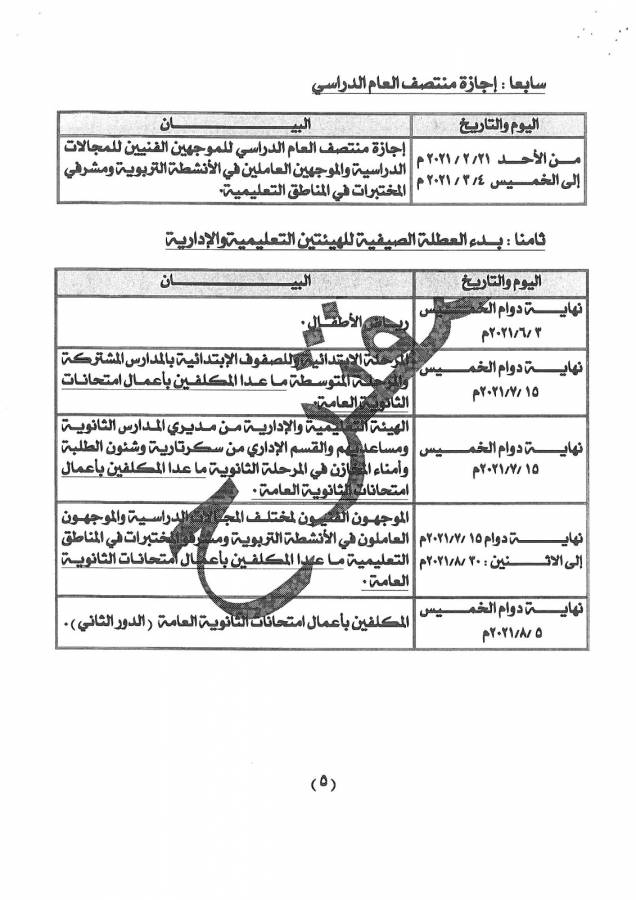 سابعا : إجازة منتصف العام الدراسي
اليوم والتاريخ
البيــــــــان
من الأحد ٢٠٢١/٢/٢١ م
إلى الخميس ٢٠٢١/٣/٤ م
إجازة منتصف العام الدراسي للموجهين الفنيين للمجالات
الدراسية والموجهين العاملين في الأنشطة التربوية ومشرفي
المختبرات في المناطق التعليمية.
ثامنا : بدء العطلة الصيفية للهيئتين التعليمية والإدارية
اليوم والتاريخ
البيــــــــان
نهاية دوام الخميس
٢٠٢١/٦/٣م
رياض الأطفال.
نهاية دوام الخميس
٢٠٢١/٧/١٥م
المرحلة الابتدائية وللصفوف الإبتدائية بالمدارس المشتركة
والمرحلة المتوسطة ما عدا المكلفين بأعمال امتحانات
الثانوية العامة.
نهاية دوام الخميس
٢٠٢١/٧/١٥م
الهيئة التعليمية والإدارية من مديري المدارس الثانوية
ومساعديهم والقسم الإداري من سكرتارية وشئون الطلبة
وأمناء المخازن في المرحلة الثانوية ما عدا المكلفين بأعمال
امتحانات الثانوية العامة.
نهاية دوام ٢٠٢١/٧/١٥م
إلى الاثنين : ٢٠٢١/٨/٣٠م
الموجهون الفنيون لمختلف المجالات الدراسية والموجهون
العاملون في الأنشطة التربوية ومشرفو المختبرات في المناطق
التعليمية ما عدا المكلفين بأعمال امتحانات الثانوية
العامة.
نهاية دوام الخميس
٢٠٢١/٨/٥م
المكلفين بأعمال امتحانات الثانوية العامة (الدور الثاني).
مقترح
(٥)